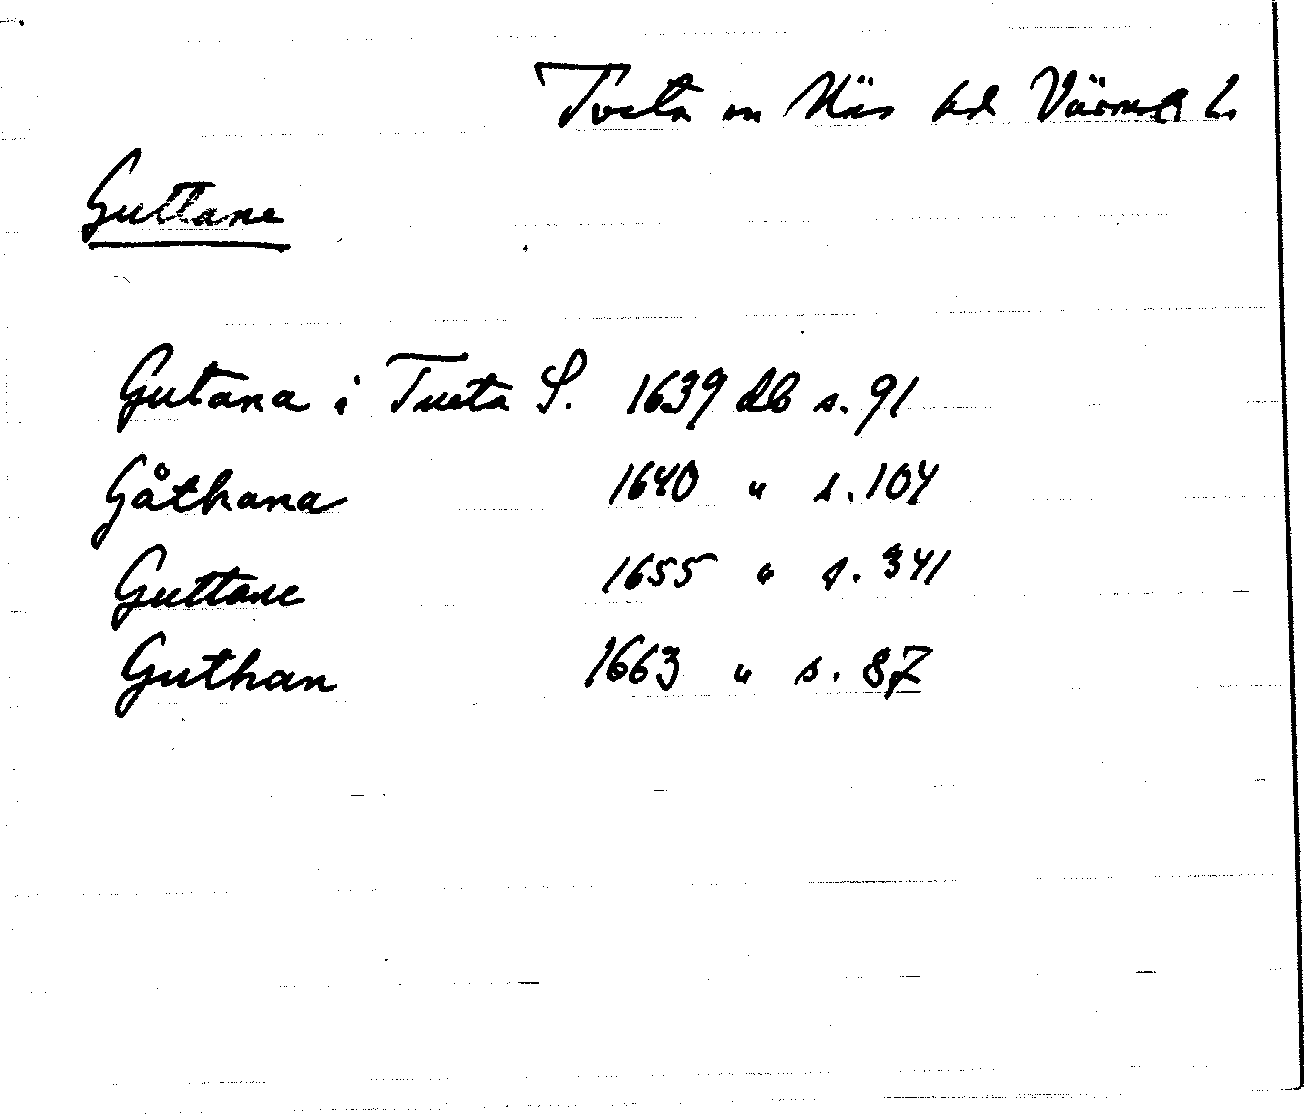 Tveta sn Näs hd Värml. l.
Guttane
Gutana i Tveta S. 1639 db s. 91
Gåthana 1640 " s. 104
Guttane 1655 " s. 341
Guthan 1663 " s. 87